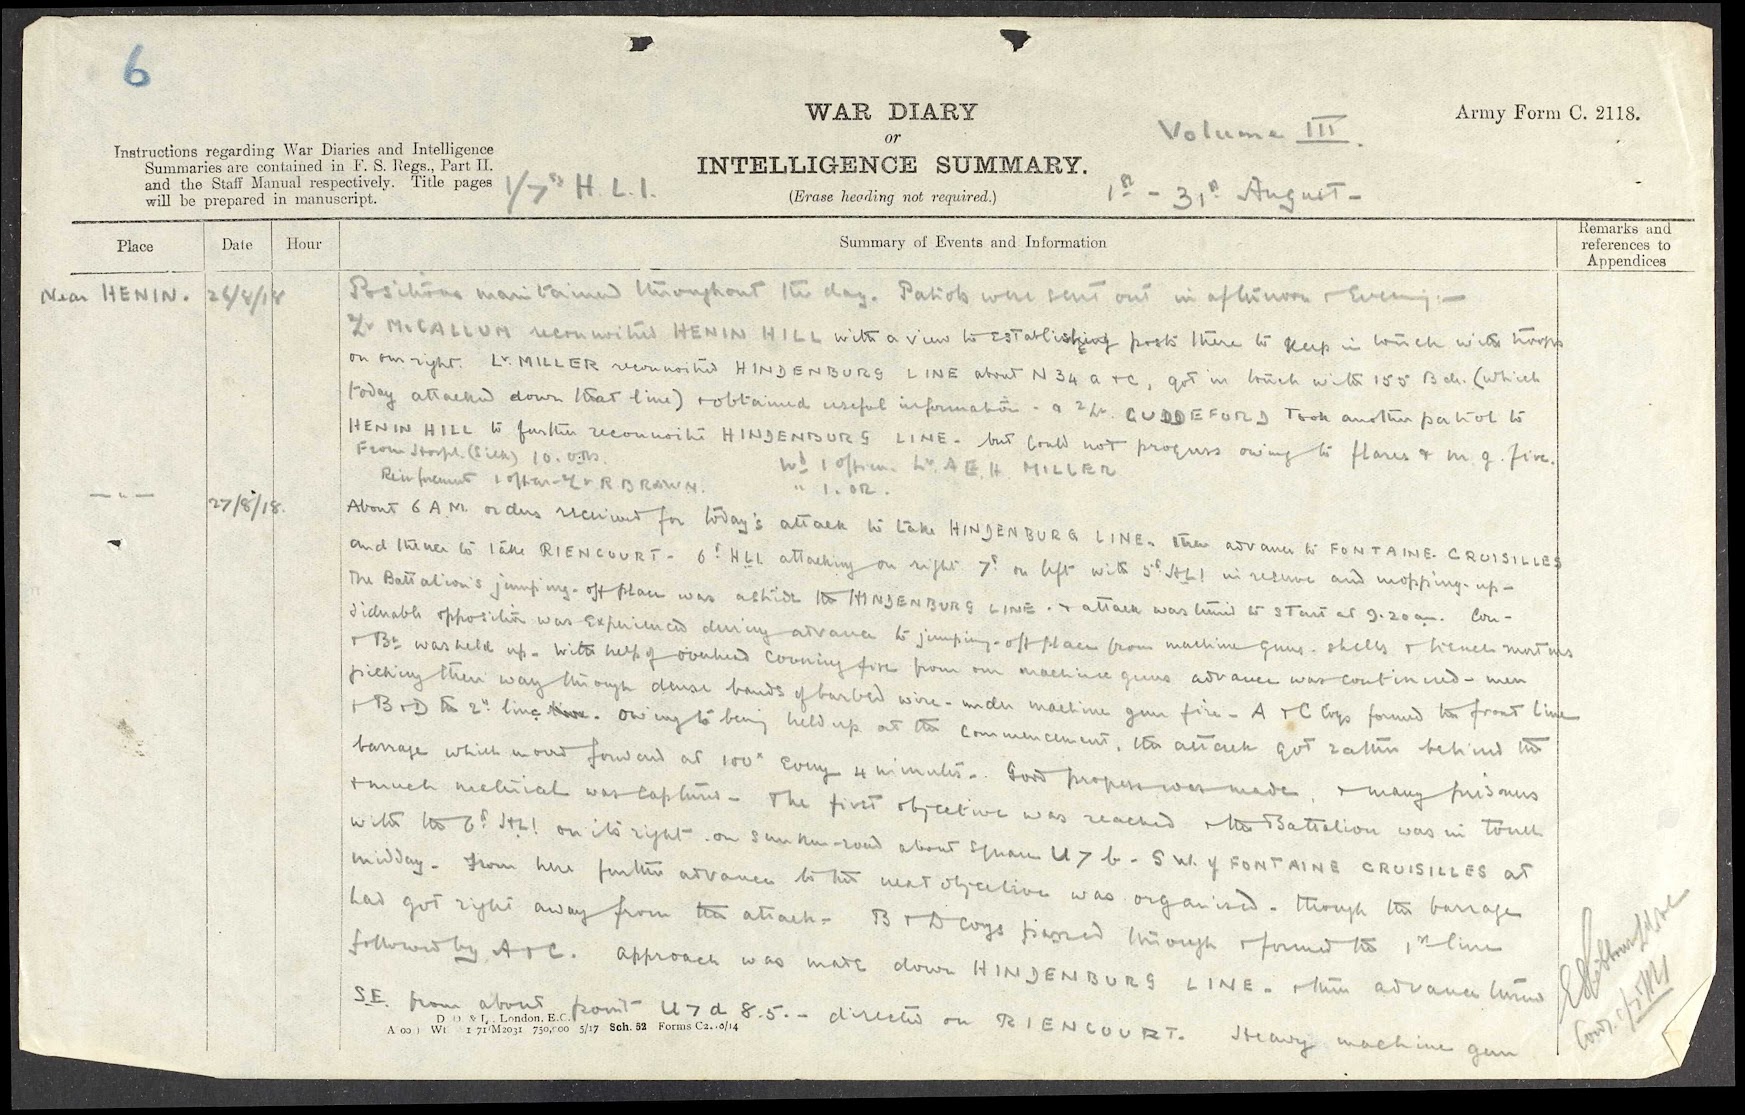 6
WAR DIARY
or
INTELLIGENCE SUMMARY.
(Erase heading not required.)
Army Form C. 2118.
Volume III.
1st - 31st August -
Instructions regarding War Diaries and Intelligence
Summaries are contained in F. S. Regs., Part II.
and the Staff Manual respectively. Title pages
will be prepared in manuscript.
1/7th H.L.I.
Place Date Hour Summary of Events and Information Remarks and references to Appendices
Near HENIN. 26/8/18 Positions maintained throughout the day. Patrols were sent out in afternoon & Evening:-
Lr McCALLUM reconnoitred HENIN HILL with a view to establishing posts there to keep in touch with troops
on our right. Lr. MILLER reconnoitred HINDENBURG LINE about N 34 a & c, got in touch with 155 Bde. (which
today attacked down that line) & obtained useful information - 2 Lr. GUDDEFORD Took another patrol to
HENIN HILL to further reconnoitre HINDENBURG LINE - but could not progress owing to flares & m.g. fire.
From Hospl. (Sick) 10. O.Rs. Wd 1 officer Lr. A.E.H. MILLER
Reinforcement 1 officer - Lr R BROWN. " 1. OR.
— " — 27/8/18. About 6 AM. orders received for today's attack to take HINDENBURG LINE. then advance to FONTAINE-CROISILLES
and thence to take RIENCOURT - 6th HLI attacking on right 7th on left with 5th HLI in reserve and mopping-up -
The Battalion's jumping-off place was astride the HINDENBURG LINE. & attack was timed to start at 9.20 am. Con-
siderable opposition was experienced during advance to jumping-off place from machine guns. shells & trench mortars
& Bn was held up. With help of overhead covering fire from our machine guns advance was continued - men
picking their way through dense bands of barbed wire - under machine gun fire - A & C Coys formed the front line
& B & D the 2nd line. Owing to being held up at the commencement, the attack got rather behind the
barrage which moved forward at 100x every 4 minutes. Good progress was made, & many prisoners
& much material was captured - The first objective was reached & the Battalion was in touch
with the 6th HLI on its right on sunken-road about square U 7 b - S.W. of FONTAINE CROISILLES at
midday - From here further advance to the next objective was organised - though the barrage
had got right away from the attack - B & D Coys passed through & formed the 1st line
followed by A & C. Approach was made down HINDENBURG LINE - & then advance turned
S.E. from about point U 7 d 8.5. - directed on RIENCOURT. Heavy machine gun
D. D. & L., London, E.C.
Wt 1 71/M2031 750,000 5/17 Sch. 52 Forms C2118/14